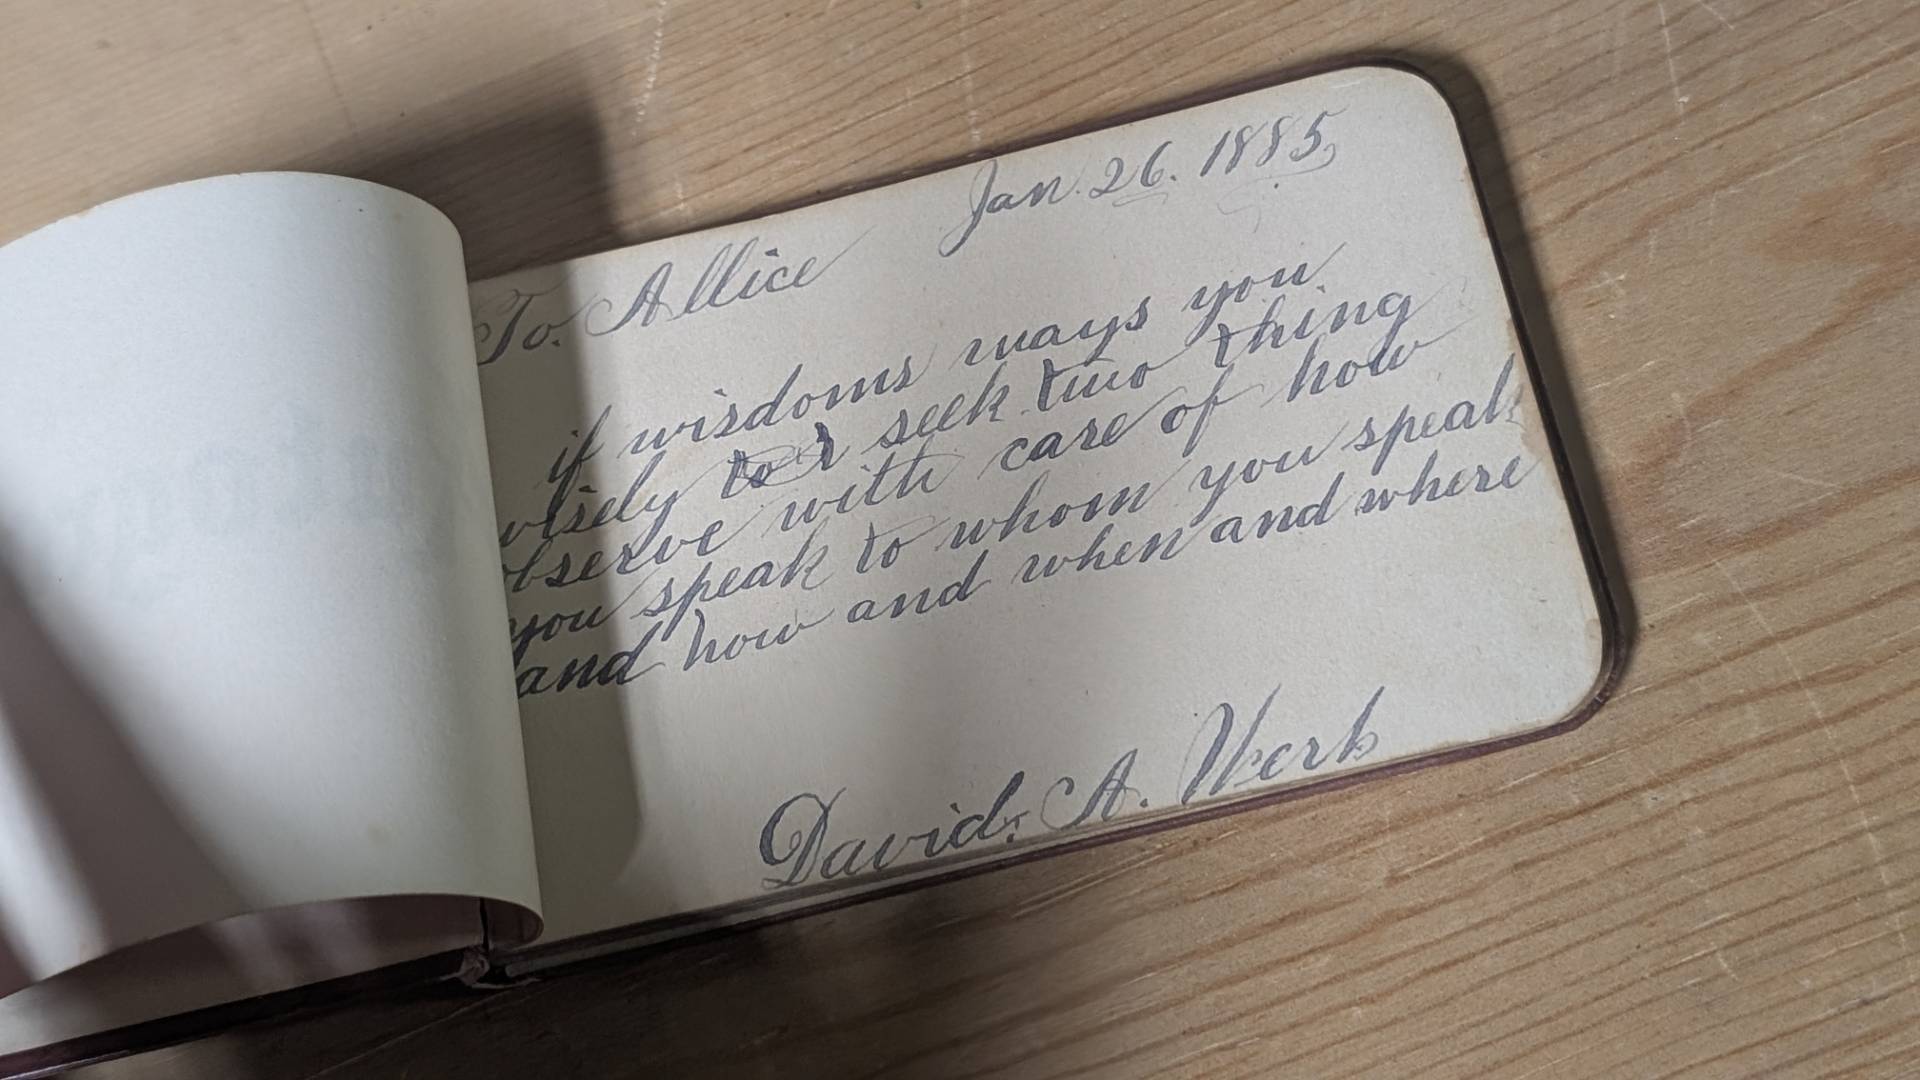 Jan. 26. 1885
To. Allice
if wisdoms ways you
wisely to seek two thing
observe with care of how
you speak to whom you speak
and how and when and where
David. A. Werb